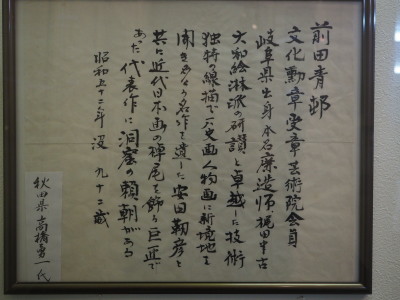 前田青邨
文化勲章受章芸術院会員
岐阜県出身 本名廉造 師 梶田半古
大和絵琳派の研讃と卓越した技術
独特の線描で歴史画人物画に新境地を
開き多くの名作を遺した 安田靭彦と
共に近代日本画の掉尾を飾る巨匠で
あった 代表作に洞窟の頼朝がある
昭和五十二年 没 九十二歳
秋田県 高橋勇一氏